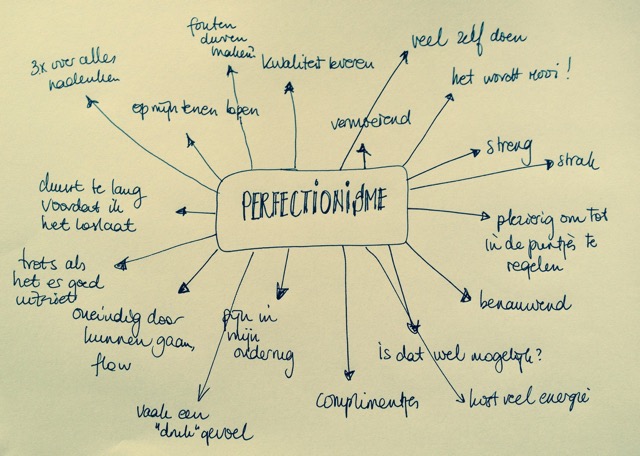 fouten
durven
maken?
veel zelf doen
3x over alles
nadenken
kwaliteit leveren
het wordt mooi!
op mijn tenen lopen
vermoeiend
streng
strak
PERFECTIONISME
duurt te lang
voordat ik
het loslaat
plezierig om tot
in de puntjes te
regelen
trots als
het er goed
uitziet
benauwend
oneindig door
kunnen gaan,
flow
pijn in
mijn
onderrug
is dat wel mogelijk?
complimentjes
kost veel energie
vaak een
"druk" gevoel